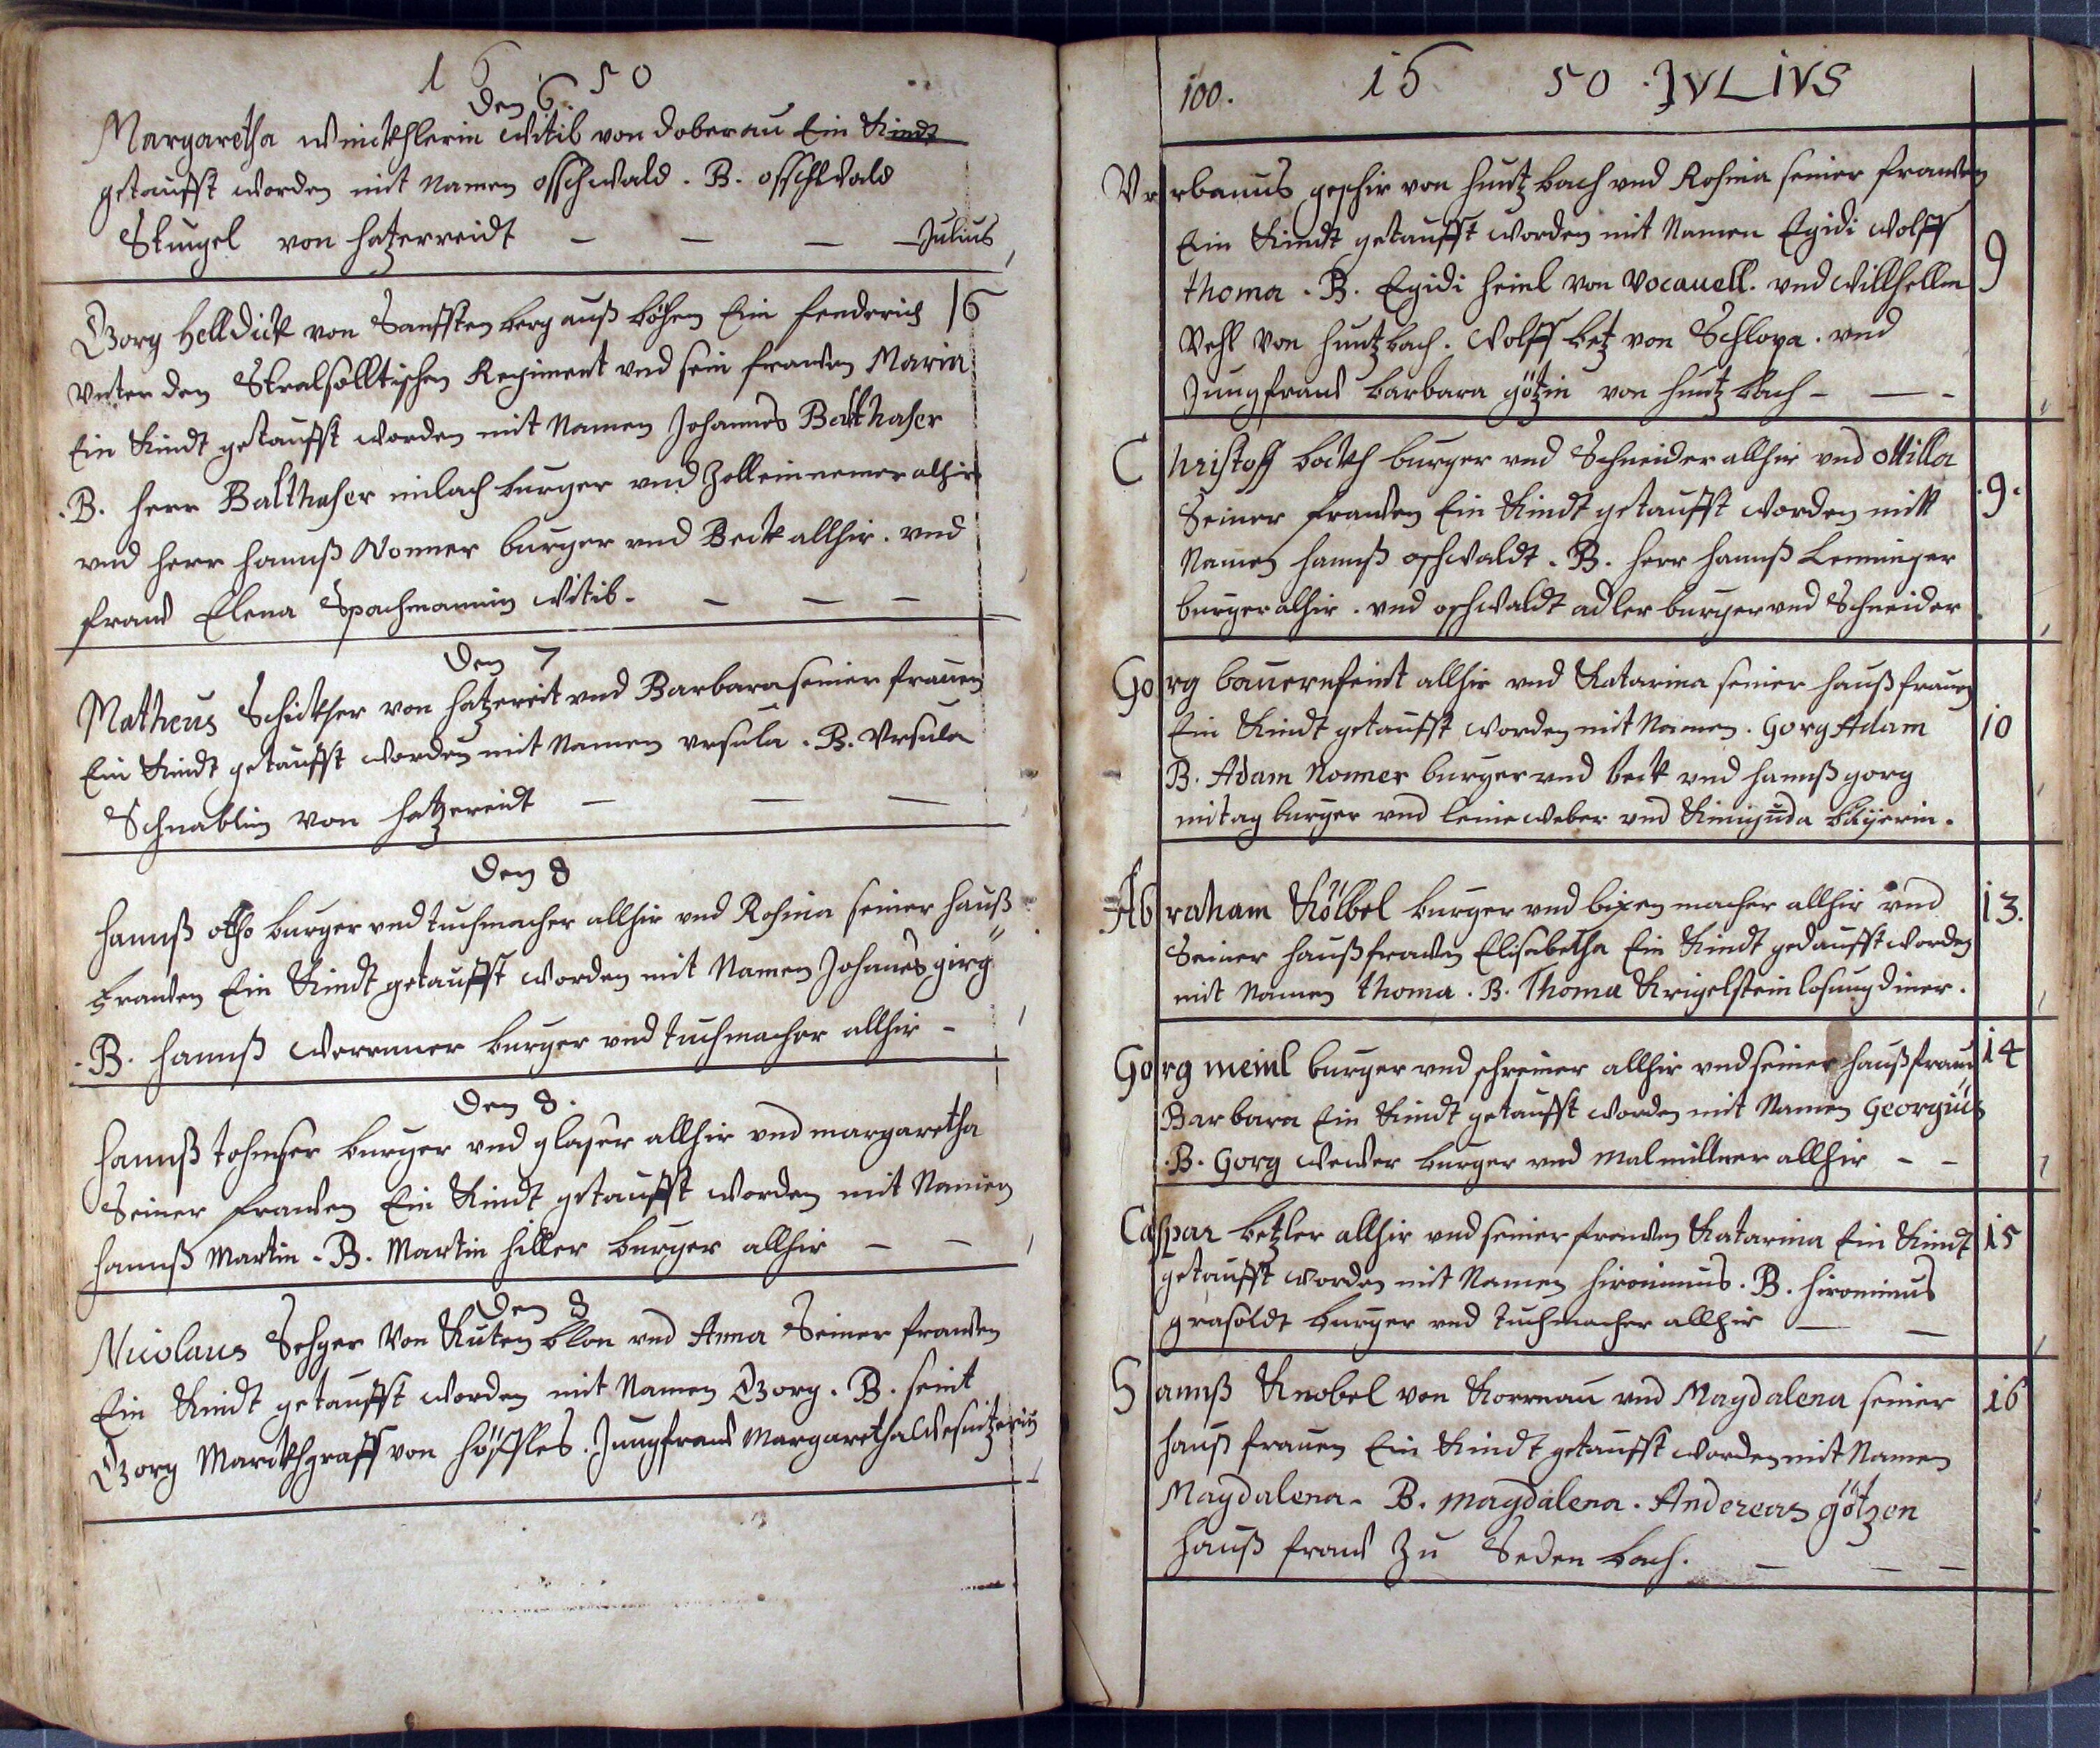 16 50
den 6.
Margaretha winckhlerin witib von doberau Ein Kindt
getaufft worden mit Namen osschwald. B. osschwald
Stingel von hatzerreidt — — — — Julius
Georg Helldick von Sanfftenberg auß böhem Ein fenderich 16
vnter den Stralsolltischen Regiment vnd sein frawen Maria
Ein Kindt getaufft worden mit Namen Johannes Balthaser
.B. herr Balthaser milach burger vnd Zolleinnemer alhir
vnd herr hannß Nonner burger vnd Beck allhir. vnd
fraw Elena Spachmannin witib. — — —
Den 7
Matheus Schickher von hatzereit vnd Barbara seiner frauen
Ein Kindt getaufft worden mit Namen vrsula. B. Vrsula
Schnablin von hatzereidt — — —
Den 8
hannß otho burger vnd tuchmacher allhir vnd Rosina seiner hauß
frawen Ein Kindt getaufft worden mit Namen Johanes girg
.B. hannß werrnner burger vnd tuchmacher allhir —
Den 8.
hannß burger vnd glaser allhir vnd margaretha
Seiner frawen Ein Kindt getaufft worden mit Namen
hannß Martin. B. Martin hiller burger allhir — —
Den 8
Nicolaus Sehger von Kuten vnd Anna Seiner frawen
Ein Kindt getaufft worden mit Namen Georg. B. seint
Georg Marckhgraff von höfles. Jungfraw Margaretha
100. 16 50 . JVLIVS
Vrrbanus geschir von huntzbach vnd Rosina seiner frawen
Ein Kindt getaufft worden mit Namen Egidi wolff 9
thoma. B. Egidi heinl von Vocauell. vnd Willhellm
Vehl von huntzbach. Wolff betz von Schlopa. vnd
Jungfraw barbara götzin von huntzbach — — —
Christoff böckh burger vnd Schneider allhir vnd ottilla
Seiner frawen Ein Kindt getaufft worden mitt .9.
Namen hannß oschwaldt. B. herr hannß Leminger
burger alhir. vnd oschwaldt adler burger vnd Schneider
Gorg bauernfeint allhir vnd Katarina seiner haußfrauen
Ein Kindt getaufft worden mit Namen. Gorg Adam 10
B. Adam Nonner burger vnd beck vnd hannß gorg
mitag burger vnd leineweber vnd Kinigunda bäyerin.
Abraham Kölbel burger vnd bixenmacher allhir vnd 13.
Seiner haußfrawen Elisabetha Ein Kindt gedaufft worden
mit Namen thoma. B. Thoma Krigelstein losungdiner.
Gorg meinl burger vnd schreiner allhir vnd seiner haußfrauen 14
Barbara Ein Kindt getaufft worden mit Namen Georgius
.B. Gorg wewer burger vnd malmillner allhir — —
Caspar betzler allhir vnd seiner frawen Katarina Ein Kindt 15
getaufft worden mit Namen hironimus. B. hironimus
grasoldt burger vnd tuchmacher allhir — —
Hannß Knobel von Kornau vnd Magdalena seiner 16
hauß frauen Ein Kindt getaufft worden mit Namen
Magdalena. B. magdalena. Andereas götzen
hauß fraw Zu Sedenbach. — — —